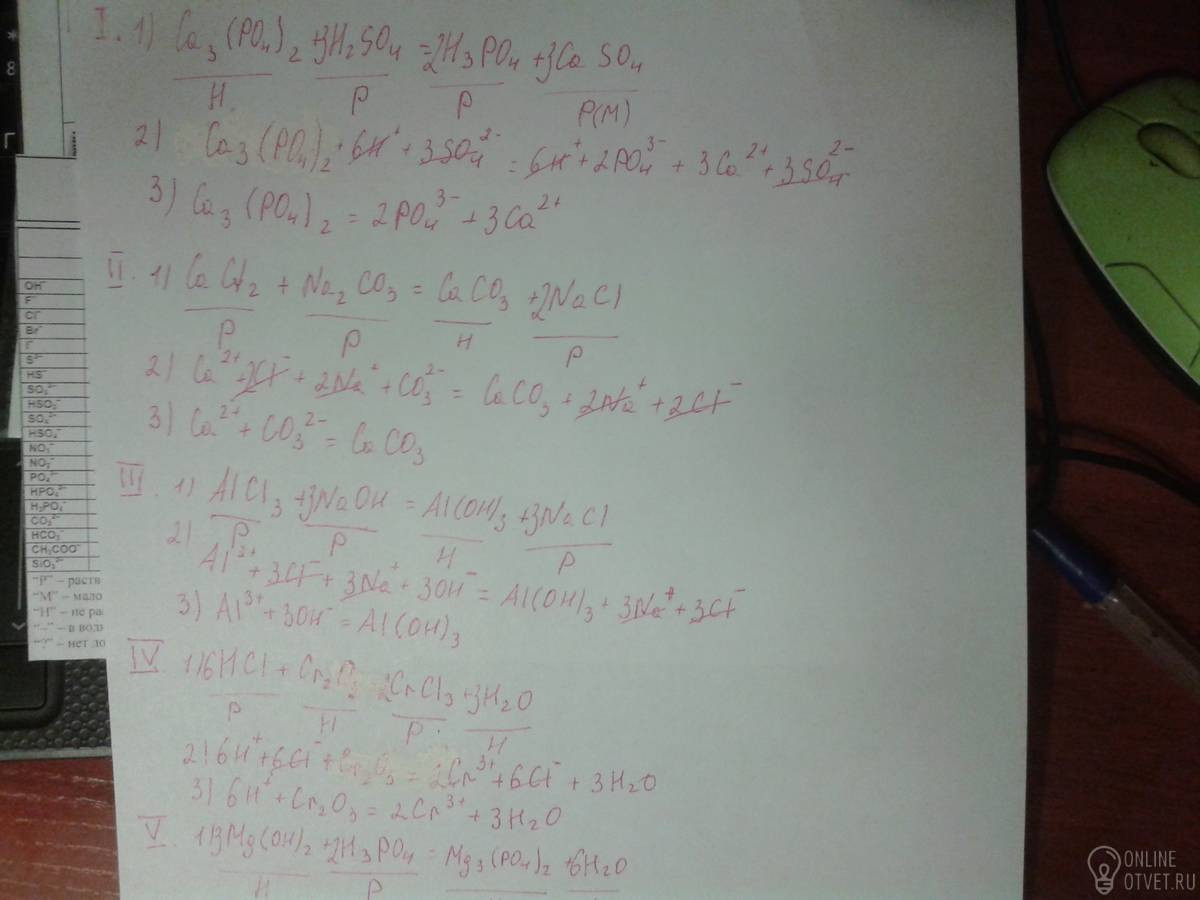 I. 1) Ca₃(PO₄)₂ + 3H₂SO₄ = 2H₃PO₄ + 3CaSO₄
Н Р Р Р(М)
2) Ca₃(PO₄)₂ + 6H⁺ + 3SO₄²⁻ = 6H⁺ + 2PO₄³⁻ + 3Ca²⁺ + 3SO₄²⁻
3) Ca₃(PO₄)₂ = 2PO₄³⁻ + 3Ca²⁺
II. 1) CaCl₂ + Na₂CO₃ = CaCO₃ + 2NaCl
Р Р Н Р
2) Ca²⁺ + 2Cl⁻ + 2Na⁺ + CO₃²⁻ = CaCO₃ + 2Na⁺ + 2Cl⁻
3) Ca²⁺ + CO₃²⁻ = CaCO₃
III. 1) AlCl₃ + 3NaOH = Al(OH)₃ + 3NaCl
Р Р Н Р
2) Al³⁺ + 3Cl⁻ + 3Na⁺ + 3OH⁻ = Al(OH)₃ + 3Na⁺ + 3Cl⁻
3) Al³⁺ + 3OH⁻ = Al(OH)₃
IV 1) 6HCl + Cr₂O₃ = 2CrCl₃ + 3H₂O
Р Н Р Н
2) 6H⁺ + 6Cl⁻ + Cr₂O₃ = 2Cr³⁺ + 6Cl⁻ + 3H₂O
3) 6H⁺ + Cr₂O₃ = 2Cr³⁺ + 3H₂O
V. 1) 3Mg(OH)₂ + 2H₃PO₄ = Mg₃(PO₄)₂ + 6H₂O
Н Р
OH⁻
F⁻
Cl⁻
Br⁻
I⁻
S²⁻
HS⁻
SO₃²⁻
HSO₃⁻
SO₄²⁻
HSO₄⁻
NO₃⁻
NO₂⁻
PO₄³⁻
HPO₄²⁻
H₂PO₄⁻
CO₃²⁻
HCO₃⁻
CH₃COO⁻
SiO₃²⁻
"Р" – раств
"М" – мало
"Н" – не ра
"–" – в вод
"?" – нет до
*
8
Г
ONLINE
OTVET.RU